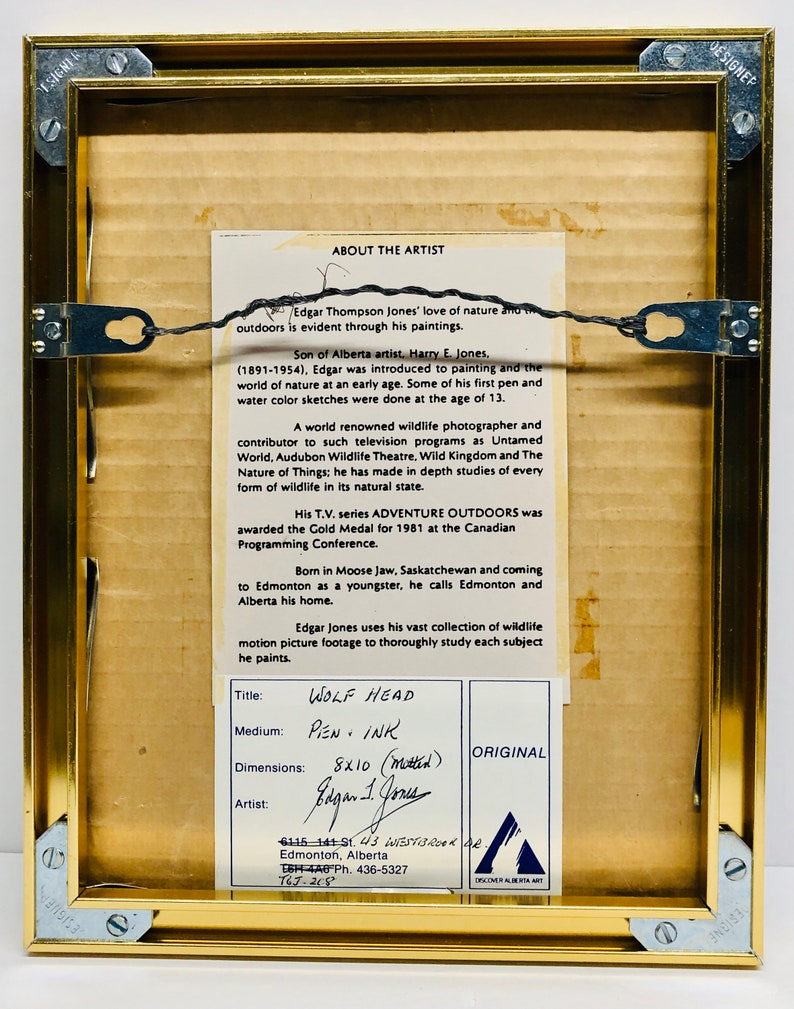 DESIGNER
DESIGNER
ABOUT THE ARTIST
Edgar Thompson Jones' love of nature and the
outdoors is evident through his paintings.
Son of Alberta artist, Harry E. Jones,
(1891-1954), Edgar was introduced to painting and the
world of nature at an early age. Some of his first pen and
water color sketches were done at the age of 13.
A world renowned wildlife photographer and
contributor to such television programs as Untamed
World, Audubon Wildlife Theatre, Wild Kingdom and The
Nature of Things; he has made in depth studies of every
form of wildlife in its natural state.
His T.V. series ADVENTURE OUTDOORS was
awarded the Gold Medal for 1981 at the Canadian
Programming Conference.
Born in Moose Jaw, Saskatchewan and coming
to Edmonton as a youngster, he calls Edmonton and
Alberta his home.
Edgar Jones uses his vast collection of wildlife
motion picture footage to thoroughly study each subject
he paints.
Title: WOLF HEAD
Medium: PEN & INK
Dimensions: 8X10 (Matted)
Artist: Edgar T. Jones
6115 141 St. 43 WESTBROOK DR.
Edmonton, Alberta
T6H 4A6 Ph. 436-5327
T6J-2C8
ORIGINAL
DISCOVER ALBERTA ART
DESIGNER
DESIGNER